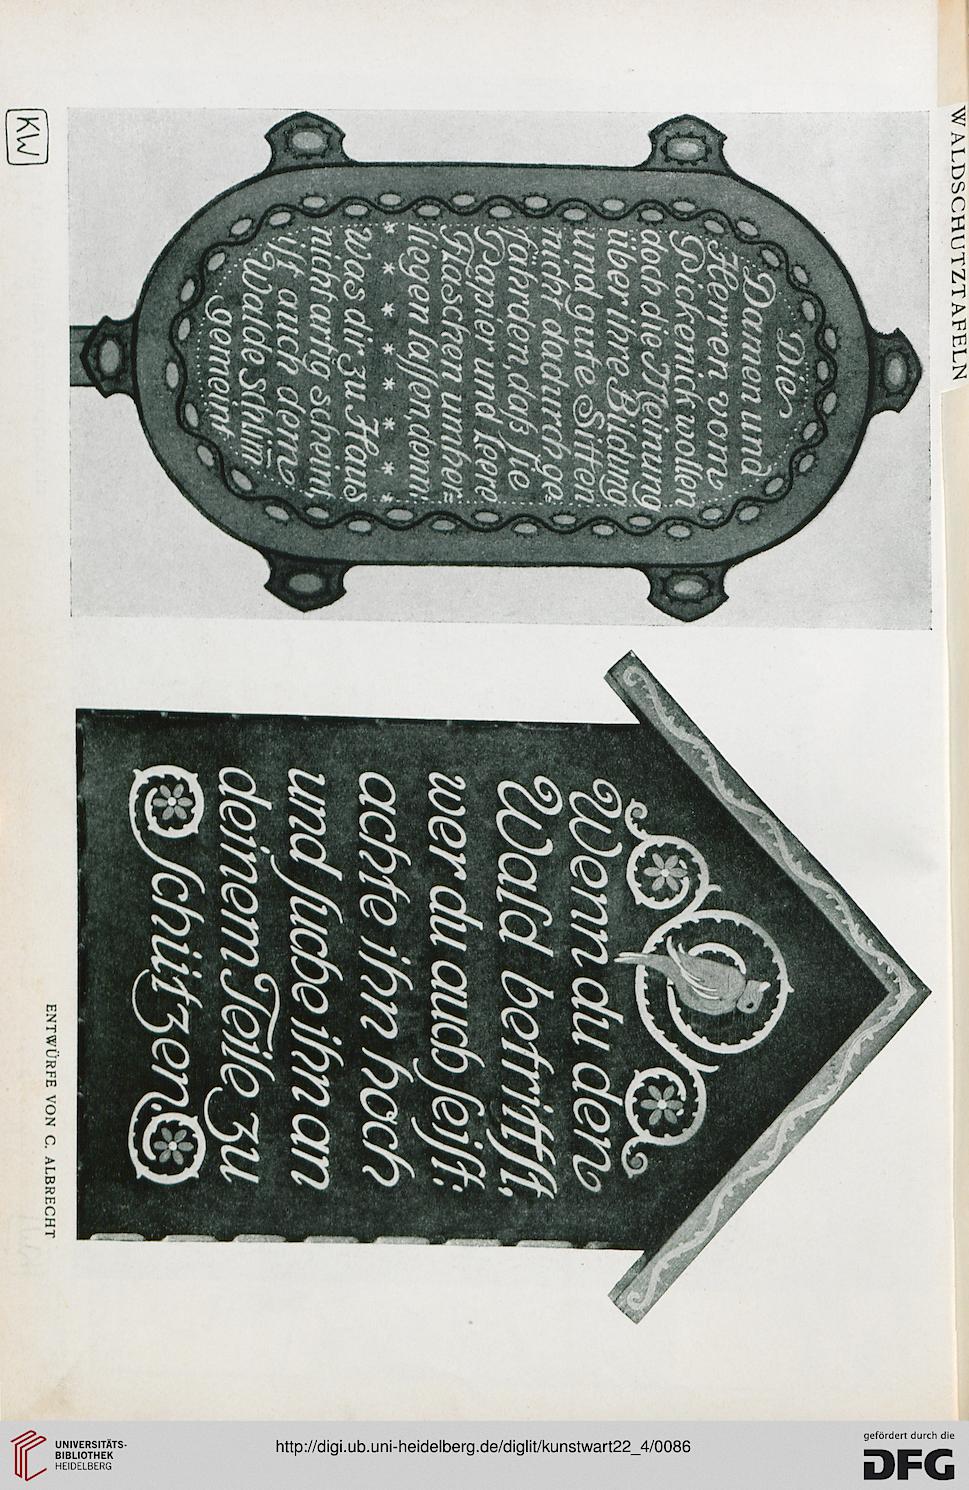 WALDSCHUTZTAFELN
Die
Damen und
Herren vom
Pickenick wollen
doch die Meinung
über ihre Bildung
und gute Sitten
nicht dadurch ge-
fährden, daß sie
Papier und leere
Flaschen umher-
liegen lassen, denn
* * * * * * *
was dir zu Haus
nicht artig scheint,
ist auch dem
Walde schlim̄
gemeint.
Wenn du den
Wald betrittst,
wer du auch seist:
achte ihn hoch
und suche ihn an
deinem Teile zu
schützen.
ENTWÜRFE VON C. ALBRECHT
KW
UNIVERSITÄTS-
BIBLIOTHEK
HEIDELBERG
http://digi.ub.uni-heidelberg.de/diglit/kunstwart22_4/0086
gefördert durch die
DFG